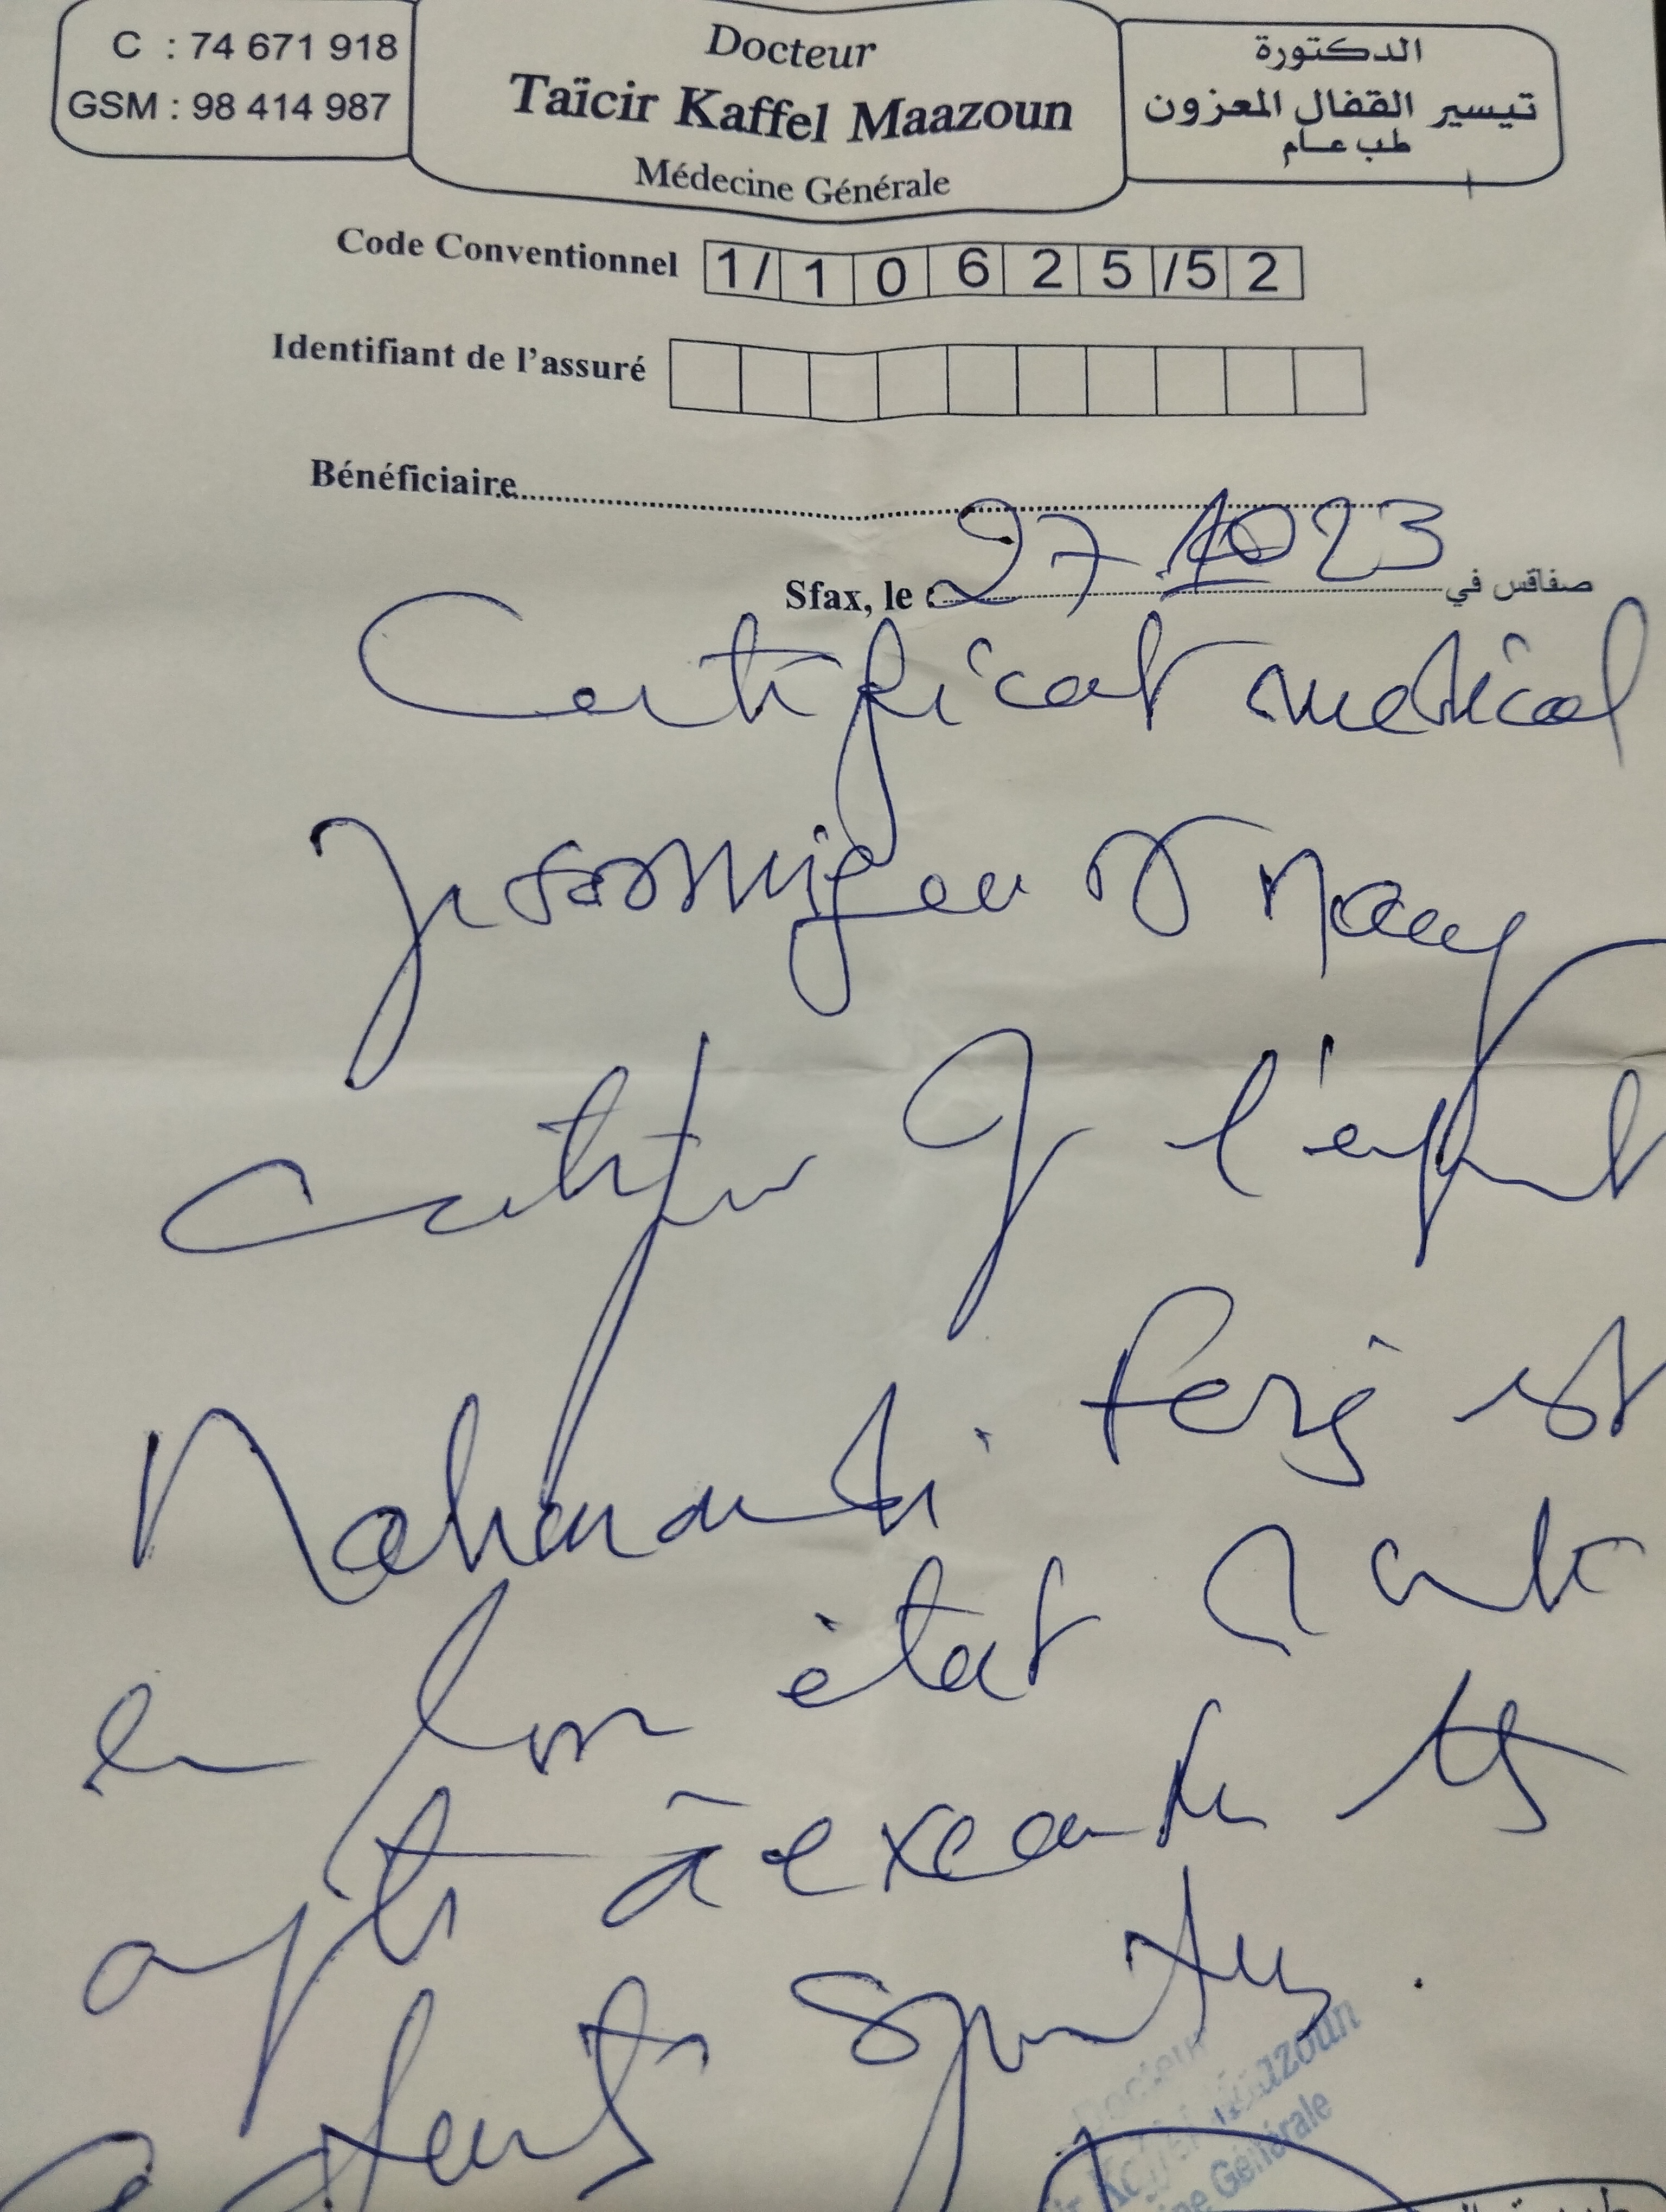 C : 74 671 918
GSM : 98 414 987
Docteur
Taïcir Kaffel Maazoun
Médecine Générale
الدكتورة
تيسير القفال المعزون
طب عام
Code Conventionnel 1/ 1 0 6 2 5 /5 2
Identifiant de l'assuré
Bénéficiaire
Sfax, le 27 10 23 صفاقس في
Certificat medical
Je soussigné Dr
certifie q l'enfant
est
en bon état santé
apte à executer
sportives.
Docteur
Maazoun
Générale